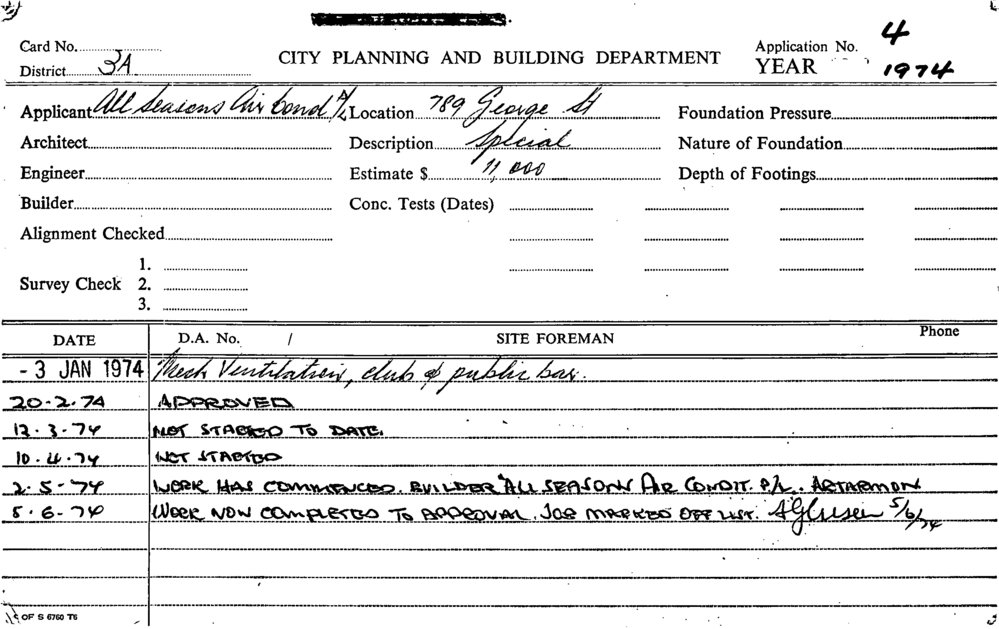 Card No. CITY PLANNING AND BUILDING DEPARTMENT Application No. 4
District 3A YEAR 1974
Applicant All Seasons Air Cond P/L Location 789 George St Foundation Pressure
Architect Description Special Nature of Foundation
Engineer Estimate $ 11,000 Depth of Footings
Builder Conc. Tests (Dates)
Alignment Checked
1.
Survey Check 2.
3.
DATE D.A. No. / SITE FOREMAN Phone
- 3 JAN 1974 Mech Ventilation, club & public bar.
20-2-74 APPROVED
12.3.74 NOT STARTED TO DATE.
10.4.74 NOT STARTED
2-5-74 WORK HAS COMMENCED. BUILDER ALL SEASONS AIR CONDIT. P/L. ARTARMON
5-6-74 WORK NOW COMPLETED TO APPROVAL. JOB MARKED OFF LIST. 5/6/74
OF S 6760 T6